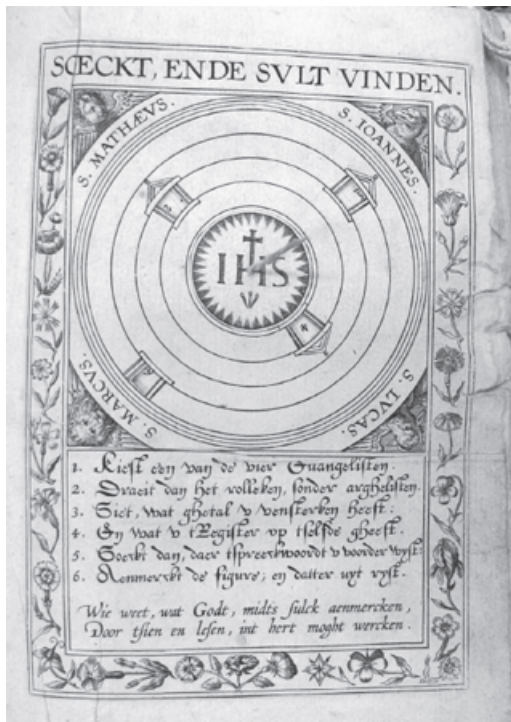 SŒCKT, ENDE SVLT VINDEN.
S. MATHÆVS.
S. IOANNES.
IHS
4
S. MARCVS.
S. LVCAS.
1. Kiest een van de vier Euangelisten.
2. Draeit dan het rolleken, sonder arghelisten.
3. Siet, wat ghetal v vensterken heeft:
4. En wat v tRegister op tselfde gheeft.
5. Soeckt dan, daer tspreeckwoordt v voorder wyst:
6. Aenmerckt de figure; en datter uyt ryst.
Wie weet, wat Godt, midts sulck aenmercken,
Door tsien en lesen, int hert moght wercken.